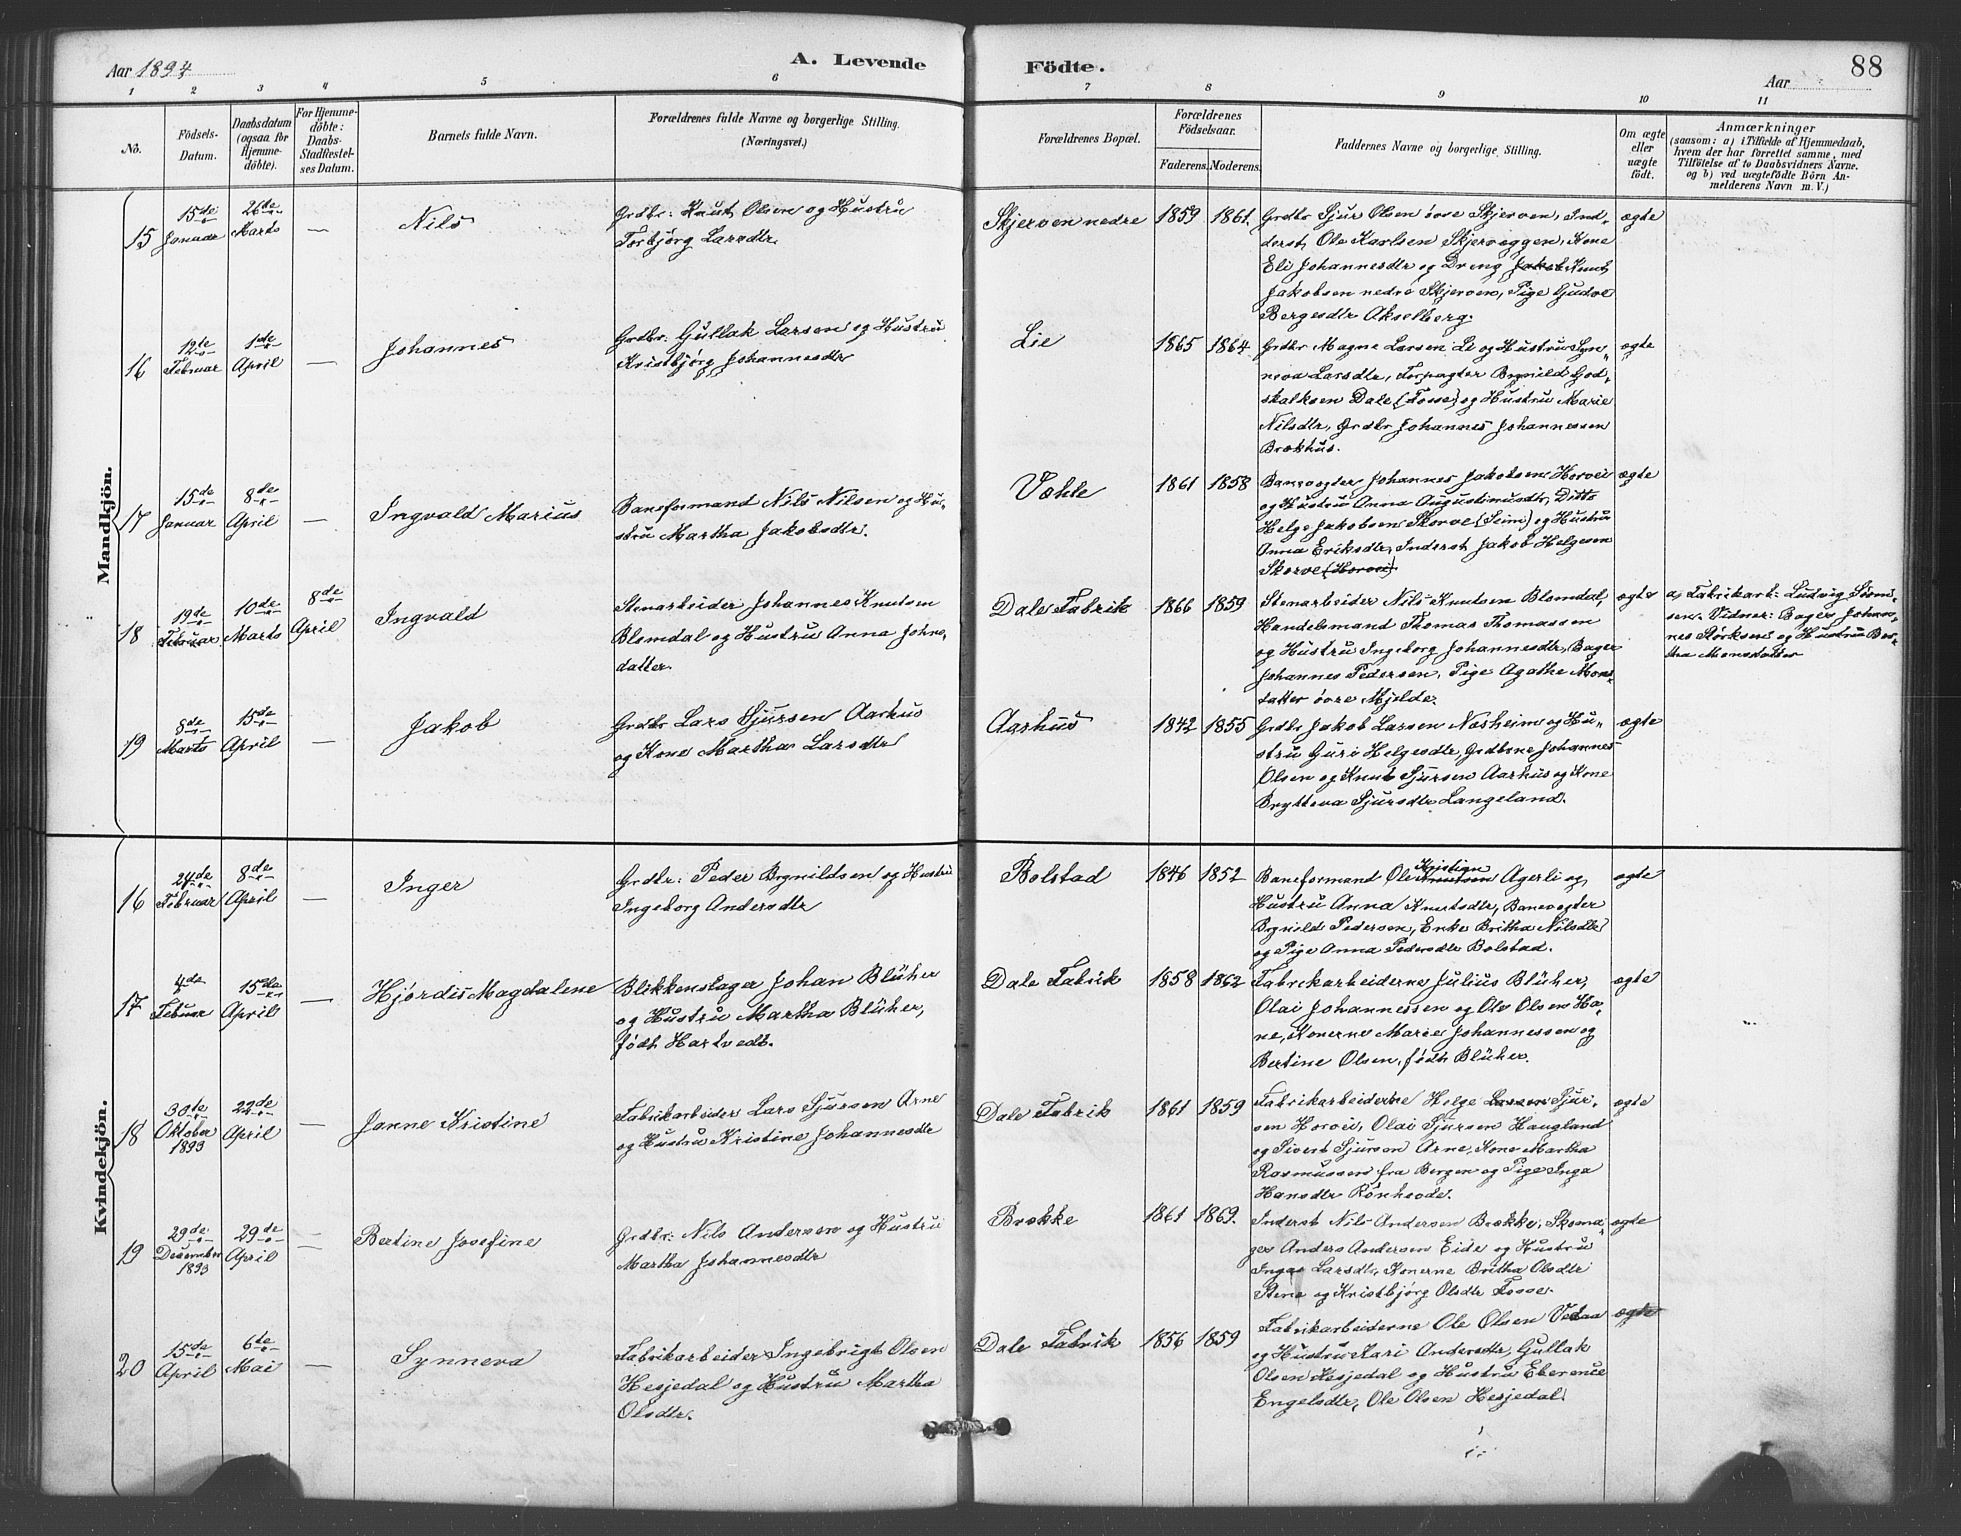 Aar 1894
A. Levende
Födte.
Aar
88
1 2 3 4 5 6 7 8 9 10 11
No.
Födsels-
Datum.
Daabsdatum
(ogsaa for
Hjemme-
döbte).
For Hjemme-
döbte:
Daabs-
Stadfæstel-
ses Datum.
Barnets fulde Navn.
Forældrenes fulde Navne og borgerlige Stilling.
(Næringsvei.)
Forældrenes Bopæl.
Forældrenes
Födselsaar.
Faderens. Moderens.
Faddernes Navne og borgerlige Stilling.
Om ægte
eller
uægte
födt.
Anmærkninger
(saasom: a) i Tilfælde af Hjemmedaab,
hvem der har forrettet samme, med
Tilföielse af to Daabsvidners Navne.
og b) ved uægtefödte Börn An-
melderens Navn m. V.)
Mandkjön.
15
15de
Januar
26de
Marts
—
Nils
Grdbr: Knut Olsen og Hustru
Torbjörg Larsdtr.
Skjerven nedre
1859
1861.
Grdbr Sjur Olsen övre Skjerven, Ind-
derst Ole Karlsen Skjerveggen, Kone
Eli Johannesdtr og Dreng Jakob Knut
Jakobsen nedre Skjerven, Pige Gudve
Bergesdtr Akselberg.
ægte
16
12te
Februar
1de
April
—
Johannes
Grdbr: Gullak Larsen og Hustru
Kristbjörg Johannesdtr
Lie
1865
1864
Grdbr Magne Larsen Li og Hustru Syn-
neva Larsdtr, Forpagter Brynild God-
skalksen Dale (Fosse) og Hustru Marie
Nilsdtr, Grdbr Johannes Johannessen
Brækhus.
ægte
17
15de
Januar
8de
April
—
Ingvald Marius
Baneformand Nils Nilsen og Hu-
stru Martha Jakobsdtr.
Væhle
1861
1858
Banevogter Johannes Jakobsen Horvei
og Hustru Anna Augustinusdtr, Ditto
Helge Jakobsen Skorve (Seim) og Hustru
Anna Eriksdtr, Inderst Jakob Helgesen
Skorve (Horvei).
ægte
18
19de
Februar
10de
Marts
8de
April
Ingvald
Stenarbeider Johannes Knutsen
Blomdal og Hustru Anna Johns-
datter.
Dale Fabrik
1866
1859
Stenarbeider Nils Knutsen Blomdal,
Handelsmand Thomas Thomassen
og Hustru Ingeborg Johannesdtr, Bager
Johannes Pedersen, Pige Agathe Mons-
datter övre Mjelde.
ægte
a) Fabrikarb: Ludvig Sörn-
sen. Vidner: Bager Johan-
nes Störksen og Hustru Ber-
tha Monsdatter
19
8de
Marts
15de
April
—
Jakob
Grdbr Lars Sjursen Aarhus
og Kone Martha Larsdtr
Aarhus
1842
1855
Grdbr Jakob Larsen Næsheim og Hu-
stru Guri Helgesdtr, Grdbrne Johannes
Olsen og Knut Sjursen Aarhus og Kone
Brytteva Sjursdtr Langeland.
ægte
Kvindekjön.
16
24de
Februar
8de
April
—
Inger
Grdbr: Peder Brynildsen og Hustru
Ingeborg Andersdtr
Bolstad
1846
1852
Baneformand Ole Kristian Knutsen Agerli og
Hustru Anna Knutsdtr, Banevogter
Brynild Pedersen, Enke Britha Nilsdtr
og Pige Anna Pedersdtr Bolstad.
ægte
17
4de
Febuar
15de
April
—
Hjördis Magdalene
Blikkenslager Johan Blüher
og Hustru Martha Blüher,
födt Hartvedt.
Dale Fabrik
1858
1862
Fabrikarbeiderne Julius Blüher,
Olai Johannessen og Ole Olsen Ha-
ne, Konerne Marie Johannessen og
Bertine Olsen, födt Blüher.
ægte
18
30te
Oktober
1893
22de
April
—
Janne Kristine
Fabrikarbeider Lars Sjursen Arne
og Hustru Kristine Johannesdtr
Dale Fabrik
1861
1859
Fabrikarbeiderne Helge Larsen Sjur-
sen Horvei, Olai Sjursen Haugland
og Sivert Sjursen Arne, Kone Martha
Rasmussen fra Bergen og Pige Inga
Hansdtr Rönhovde.
ægte
19
29de
December
1893
29de
April
—
Bertine Josefine
Grdbr: Nils Andersen og Hustru
Martha Johannesdtr
Brække
1861
1869.
Inderst Nils Andersen Brække, Skoma-
ger Anders Andersen Eide og Hustru
Inga Larsdtr, Konerne Britha Olsdtr
Stene og Kristbjörg Olsdtr Fosse.
ægte
20
15de
April
6te
Mai
—
Synneva
Fabrikarbeider Ingebrigt Olsen
Hesjedal og Hustru Martha
Olsdtr.
Dale Fabrik
1856
1859
Fabrikarbeiderne Ole Olsen Vedaa
og Hustru Kari Andersdtr, Gullak
Olsen Hesjedal og Hustru Eberence
Engelsdtr, Ole Olsen Hesjedal.
ægte